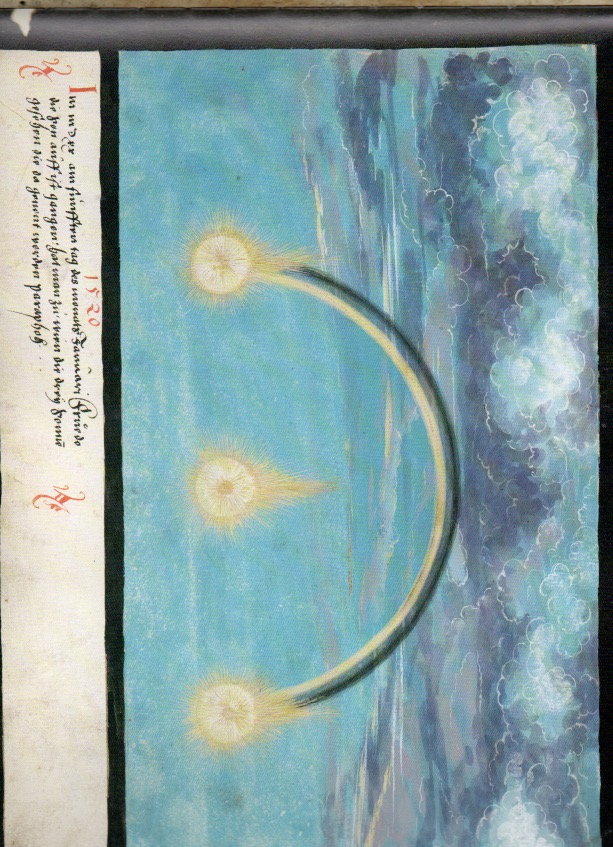 1520
Im m d xx am fünfften tag des monats Januari Frue do
die son auff ist gangen hat man zu wien die drey sonnē
gesehen die da genent werden paraphoh